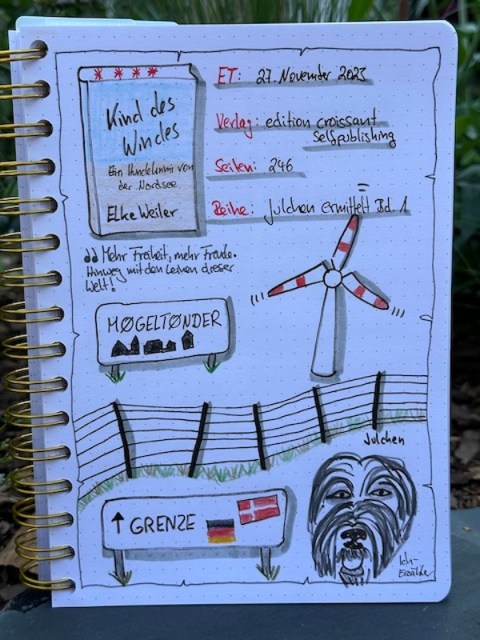 Kind des
Windes
Ein Hundekrimi von
der Nordsee
Elke Weiler
ET: 27. November 2023
Verlag: edition croissant
selfpublishing
Seiten: 246
Reihe: Julchen ermittelt Bd. 1
„Mehr Freiheit, mehr Freude.
Hinweg mit den Leinen dieser
Welt!
MØGELTØNDER
Julchen
↑ GRENZE
Ich-
Erzähler